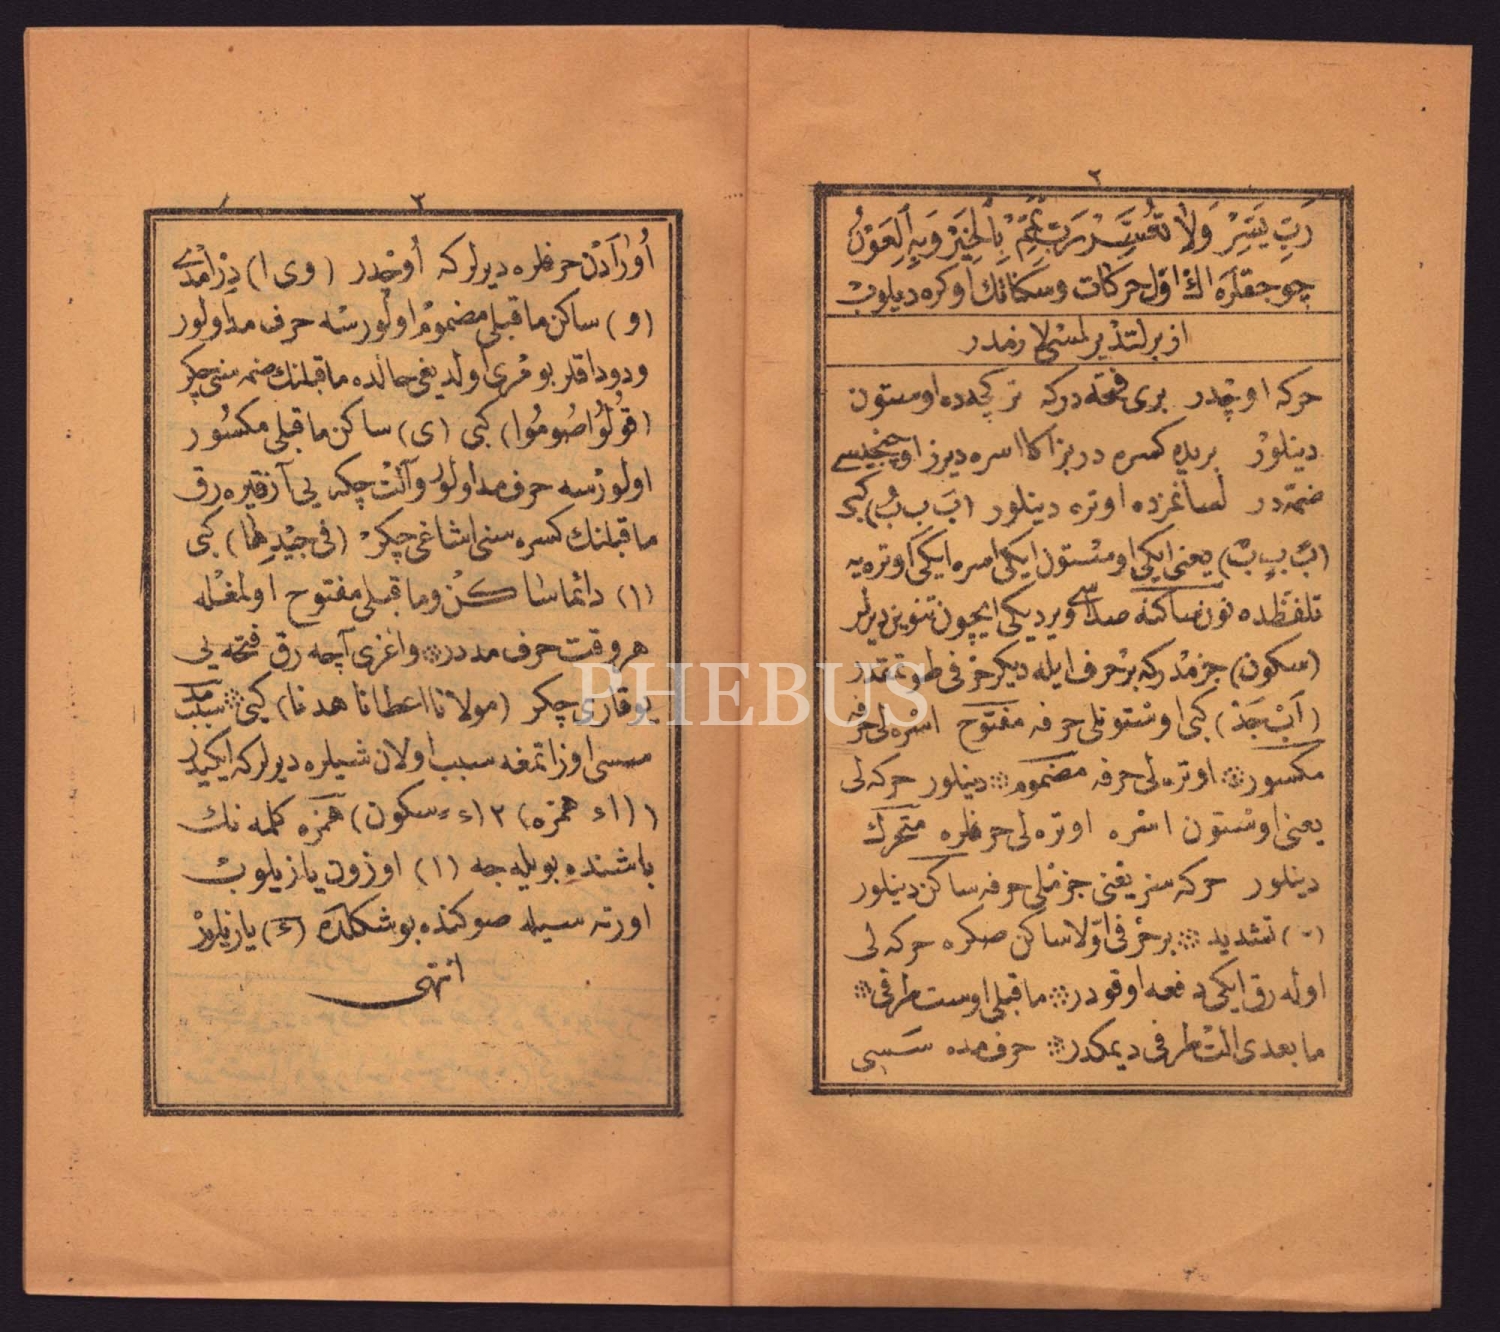 ٢
رَبِّ يَسِّرْ وَلَا تُعَسِّرْ رَبِّ تَمِّمْ بِالْخَيْرِ وَبِهِ الْعَوْنُ
چوجقلره اڭ اوّل حركات وسكناتك اوكره ديلوب
ازبرلتديرلمسى لازمدر
حركه اوچدر برى فتحه دركه تركجه ده اوستون
دينلور بريده كسره در بز اكا اسره ديرز اوچنجيسى
ضمّه در لسانمزده اوتره دينلور (بَ بِ بُ) كبى
(بً بٍ بٌ) يعنى ايكى اوستون ايكى اسره ايكى اوتره يه
تلفظده نون ساكنه صداسى ويرديكى ايچون تنوين ديرلر
(سكون) جزمدركه بر حرف ايله ديكر حرفى طوتمقدر
(اَبْ جَدْ) كبى اوستونلى حرفه مفتوح اسره لى حرفه
مكسور اوتره لى حرفه مضموم دينلور حركه لى
يعنى اوستون اسره اوتره لى حرفلره متحرك
دينلور حركه سز يعنى جزملى حرفه ساكن دينلور
(ّ) تشديد بر حرفى اوّلا ساكن صكره حركه لى
اوله رق ايكى دفعه اوقودر ماقبلى اوست طرفى
مابعدى آلت طرفى ديمكدر حرف مده سسى
٣
اُوزادَن حرفلره ديرلركه اوچدر (و ى ا) در
(و) ساكن ماقبلى مضموم اولورسه حرف مد اولور
ودوداقلر يومرى اولديغى حالده ماقبلنك ضمه سنى چكر
(قُولُوا صُومُوا) كبى (ى) ساكن ماقبلى مكسور
اولورسه حرف مد اولور وآلت چكه يى آز قيره رق
ماقبلنك كسره سنى اشاغى چكر (فى جيدها) كبى
(ا) دائما ساكن وماقبلى مفتوح اولمغله
هر وقت حرف مددر واغزى آچه رق فتحه يى
يوقارى چكر (مولانا اعطانا هدنا) كبى سبب مد
سسى اوزاتمغه سبب اولان شيلره ديرلركه ايكيدر
١ (اء همزه) ٢ (ءْ سكون) همزه كلمه نك
باشنده بويله جه (ا) اوزون يازيلوب
اورته سيله صوكنده بو شكلده (ء) يازيلور
انتهى
PHEBUS